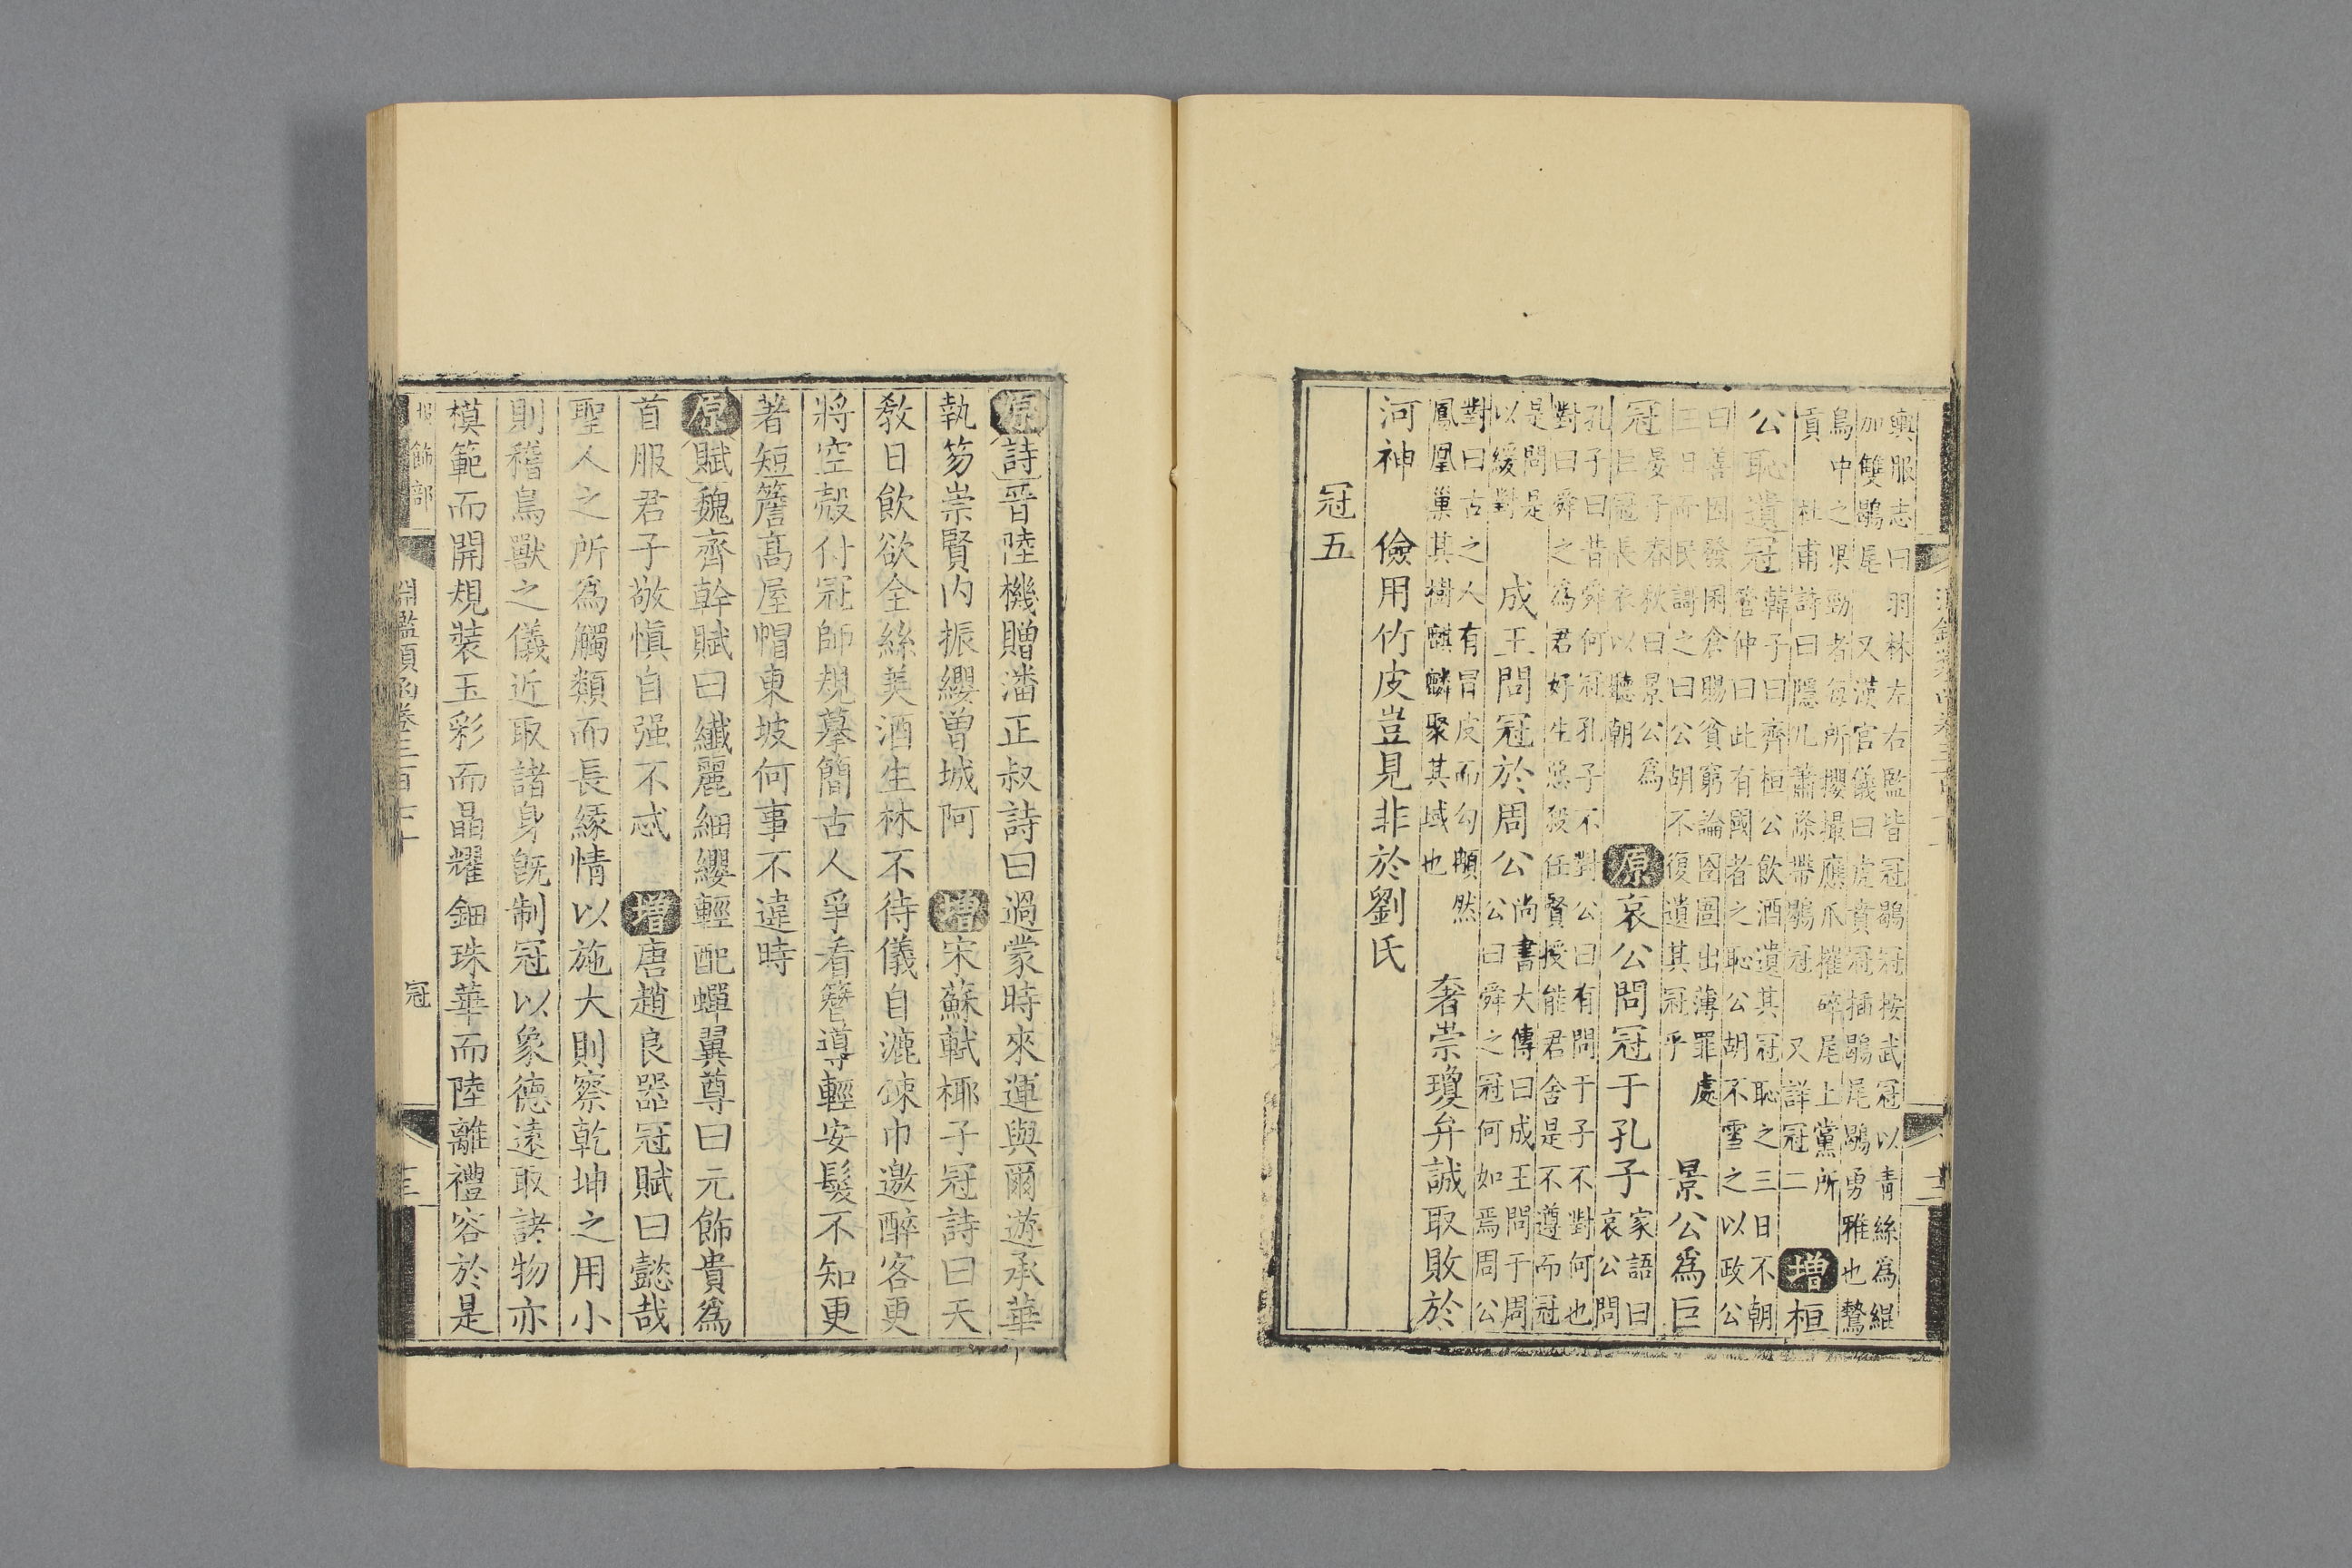 輿服志曰羽林左右監皆冠鶡冠按武冠以青絲爲緄
加雙鶡尾 又漢官儀曰虎賁冠插鶡尾鶡勇雅也鷙
鳥中之果勁者每所攖撮應爪摧碎尾上黨所
貢 杜甫詩曰隱几蕭條帶鶡冠 又詳冠二
增桓
公恥遺冠
韓子曰齊桓公飲酒遺其冠恥之三日不朝
管仲曰此有國者之恥公胡不雪之以政公
曰善因發囷倉賜貧窮論囹圄出薄罪處
三日而民謌之曰公胡不復遺其冠乎
景公爲巨
冠
晏子春秋曰景公爲
巨冠長衣以聽朝
原哀公問冠于孔子
家語曰
哀公問
孔子曰昔舜何冠孔子不對公曰有問于子不對何也
對曰舜之爲君好生惡殺任賢授能君舍是不遵而冠
是問是
以緩對
成王問冠於周公
尚書大傳曰成王問于周
公曰舜之冠何如焉周公
對曰古之人有冒皮而勾頸然
鳳凰巢其樹麒麟聚其域也
奢崇瓊弁誠取敗於
河神 儉用竹皮豈見非於劉氏
冠五
原詩晉陸機贈潘正叔詩曰過蒙時來運與爾遊承華
執笏崇賢内振纓曾城阿 增宋蘇軾椰子冠詩曰天
敎日飲欲全絲美酒生林不待儀自漉疎巾邀醉客更
將空殼付冠師規摹簡古人爭看簪導輕安髮不知更
著短簷高屋帽東坡何事不違時
原賦魏齊幹賦曰纖麗細纓輕配蟬翼尊曰元飾貴爲
首服君子敬愼自强不忒 增唐趙良器冠賦曰懿哉
聖人之所爲觸類而長緣情以施大則察乾坤之用小
則稽鳥獸之儀近取諸身旣制冠以象德遠取諸物亦
模範而開規裝玉彩而晶耀鈿珠華而陸離禮容於是
服飾部 淵鑑類函卷三百七十 冠